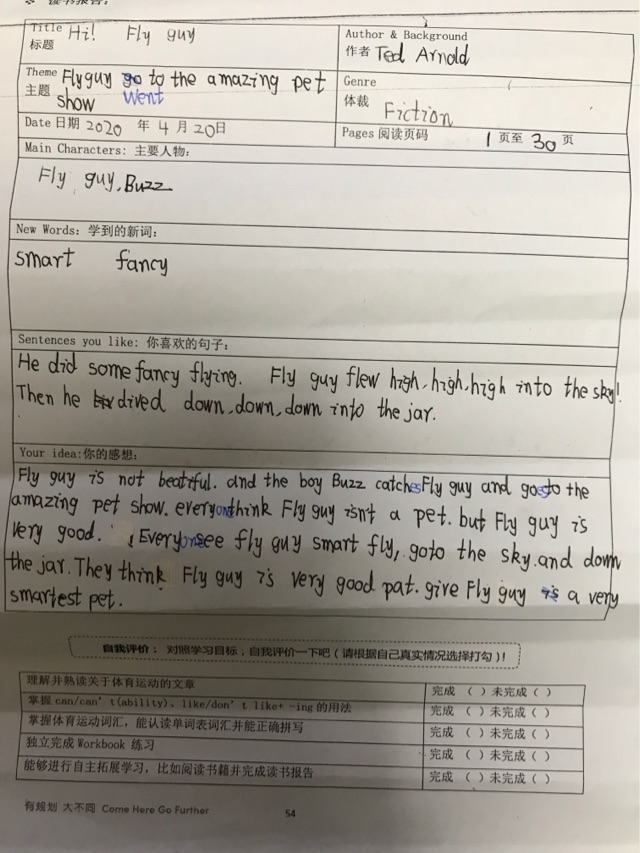 读书报告:
Title Hi! Fly guy
标题
Author & Background
作者 Ted Arnold
Theme Fly guy go to the amazing pet
主题 show went
Genre
体裁 Fiction
Date 日期 2020 年 4 月 20日
Pages 阅读页码 1 页至 30 页
Main Characters: 主要人物:
Fly guy, Buzz
New Words: 学到的新词:
smart fancy
Sentences you like: 你喜欢的句子:
He did some fancy flying. Fly guy flew high, high, high into the sky!
Then he dived down, down, down into the jar.
Your idea:你的感想:
Fly guy is not beatiful. and the boy Buzz catches Fly guy and goes to the
amazing pet show. everyone think Fly guy isn't a pet. but Fly guy is
very good. Everyone see fly guy smart fly, goto the sky. and down
the jar. They think Fly guy is very good pat. give Fly guy is a very
smartest pet.
自我评价: 对照学习目标,自我评价一下吧(请根据自己真实情况选择打勾)!
理解并熟读关于体育运动的文章 完成 ( ) 未完成 ( )
掌握 can/can't(ability)、like/don't like+ -ing 的用法 完成 ( ) 未完成 ( )
掌握体育运动词汇,能认读单词表词汇并能正确拼写 完成 ( ) 未完成 ( )
独立完成 Workbook 练习 完成 ( ) 未完成 ( )
能够进行自主拓展学习,比如阅读书籍并完成读书报告 完成 ( ) 未完成 ( )
有规划 大不同 Come Here Go Further
54